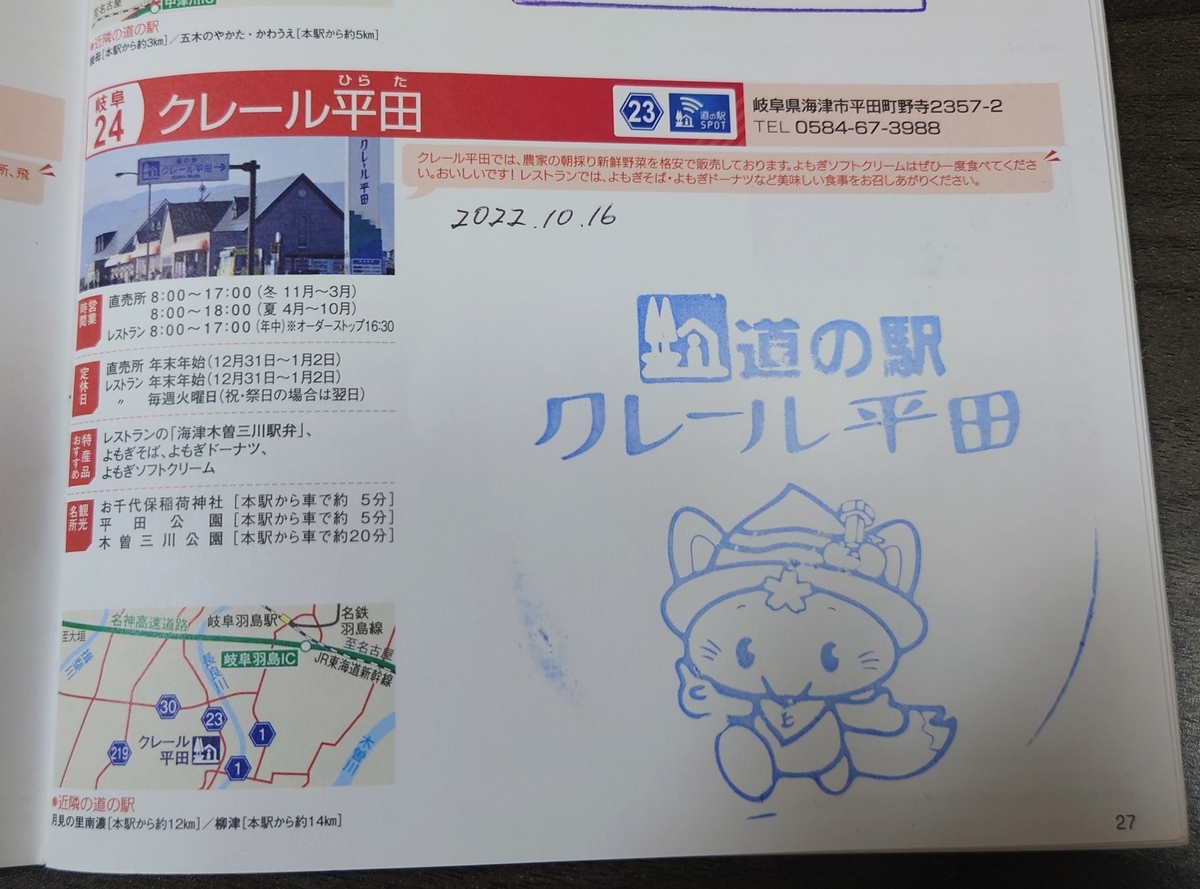 至名古屋
中津川IC
●近隣の道の駅
[本駅から約3km]／五木のやかた・かわうえ[本駅から約5km]
所、飛
岐阜
24
ひらた
クレール平田
23
道の駅
SPOT
岐阜県海津市平田町野寺2357-2
TEL 0584-67-3988
クレール平田では、農家の朝採り新鮮野菜を格安で販売しております。よもぎソフトクリームはぜひ一度食べてくださ
い。おいしいです！レストランでは、よもぎそば・よもぎドーナツなど美味しい食事をお召しあがりください。
道の駅
クレール平田→
クレール平田
2022.10.16
営業時間
直売所 8:00～17:00（冬 11月～3月）
8:00～18:00（夏 4月～10月）
レストラン 8:00～17:00（年中）※オーダーストップ16:30
定休日
直売所 年末年始（12月31日～1月2日）
レストラン 年末年始（12月31日～1月2日）
〃 毎週火曜日（祝・祭日の場合は翌日）
特産品おすすめ
レストランの「海津木曽三川駅弁」、
よもぎそば、よもぎドーナツ、
よもぎソフトクリーム
観光名所
お千代保稲荷神社［本駅から車で約 5分］
平田公園［本駅から車で約 5分］
木曽三川公園［本駅から車で約20分］
道の駅
クレール平田
名神高速道路
岐阜羽島駅
名鉄
羽島線
至大垣
至名古屋
岐阜羽島IC
JR東海道新幹線
揖斐川
長良川
木曽川
30
23
1
219
1
クレール
平田
●近隣の道の駅
月見の里南濃[本駅から約12km]／柳津[本駅から約14km]
27